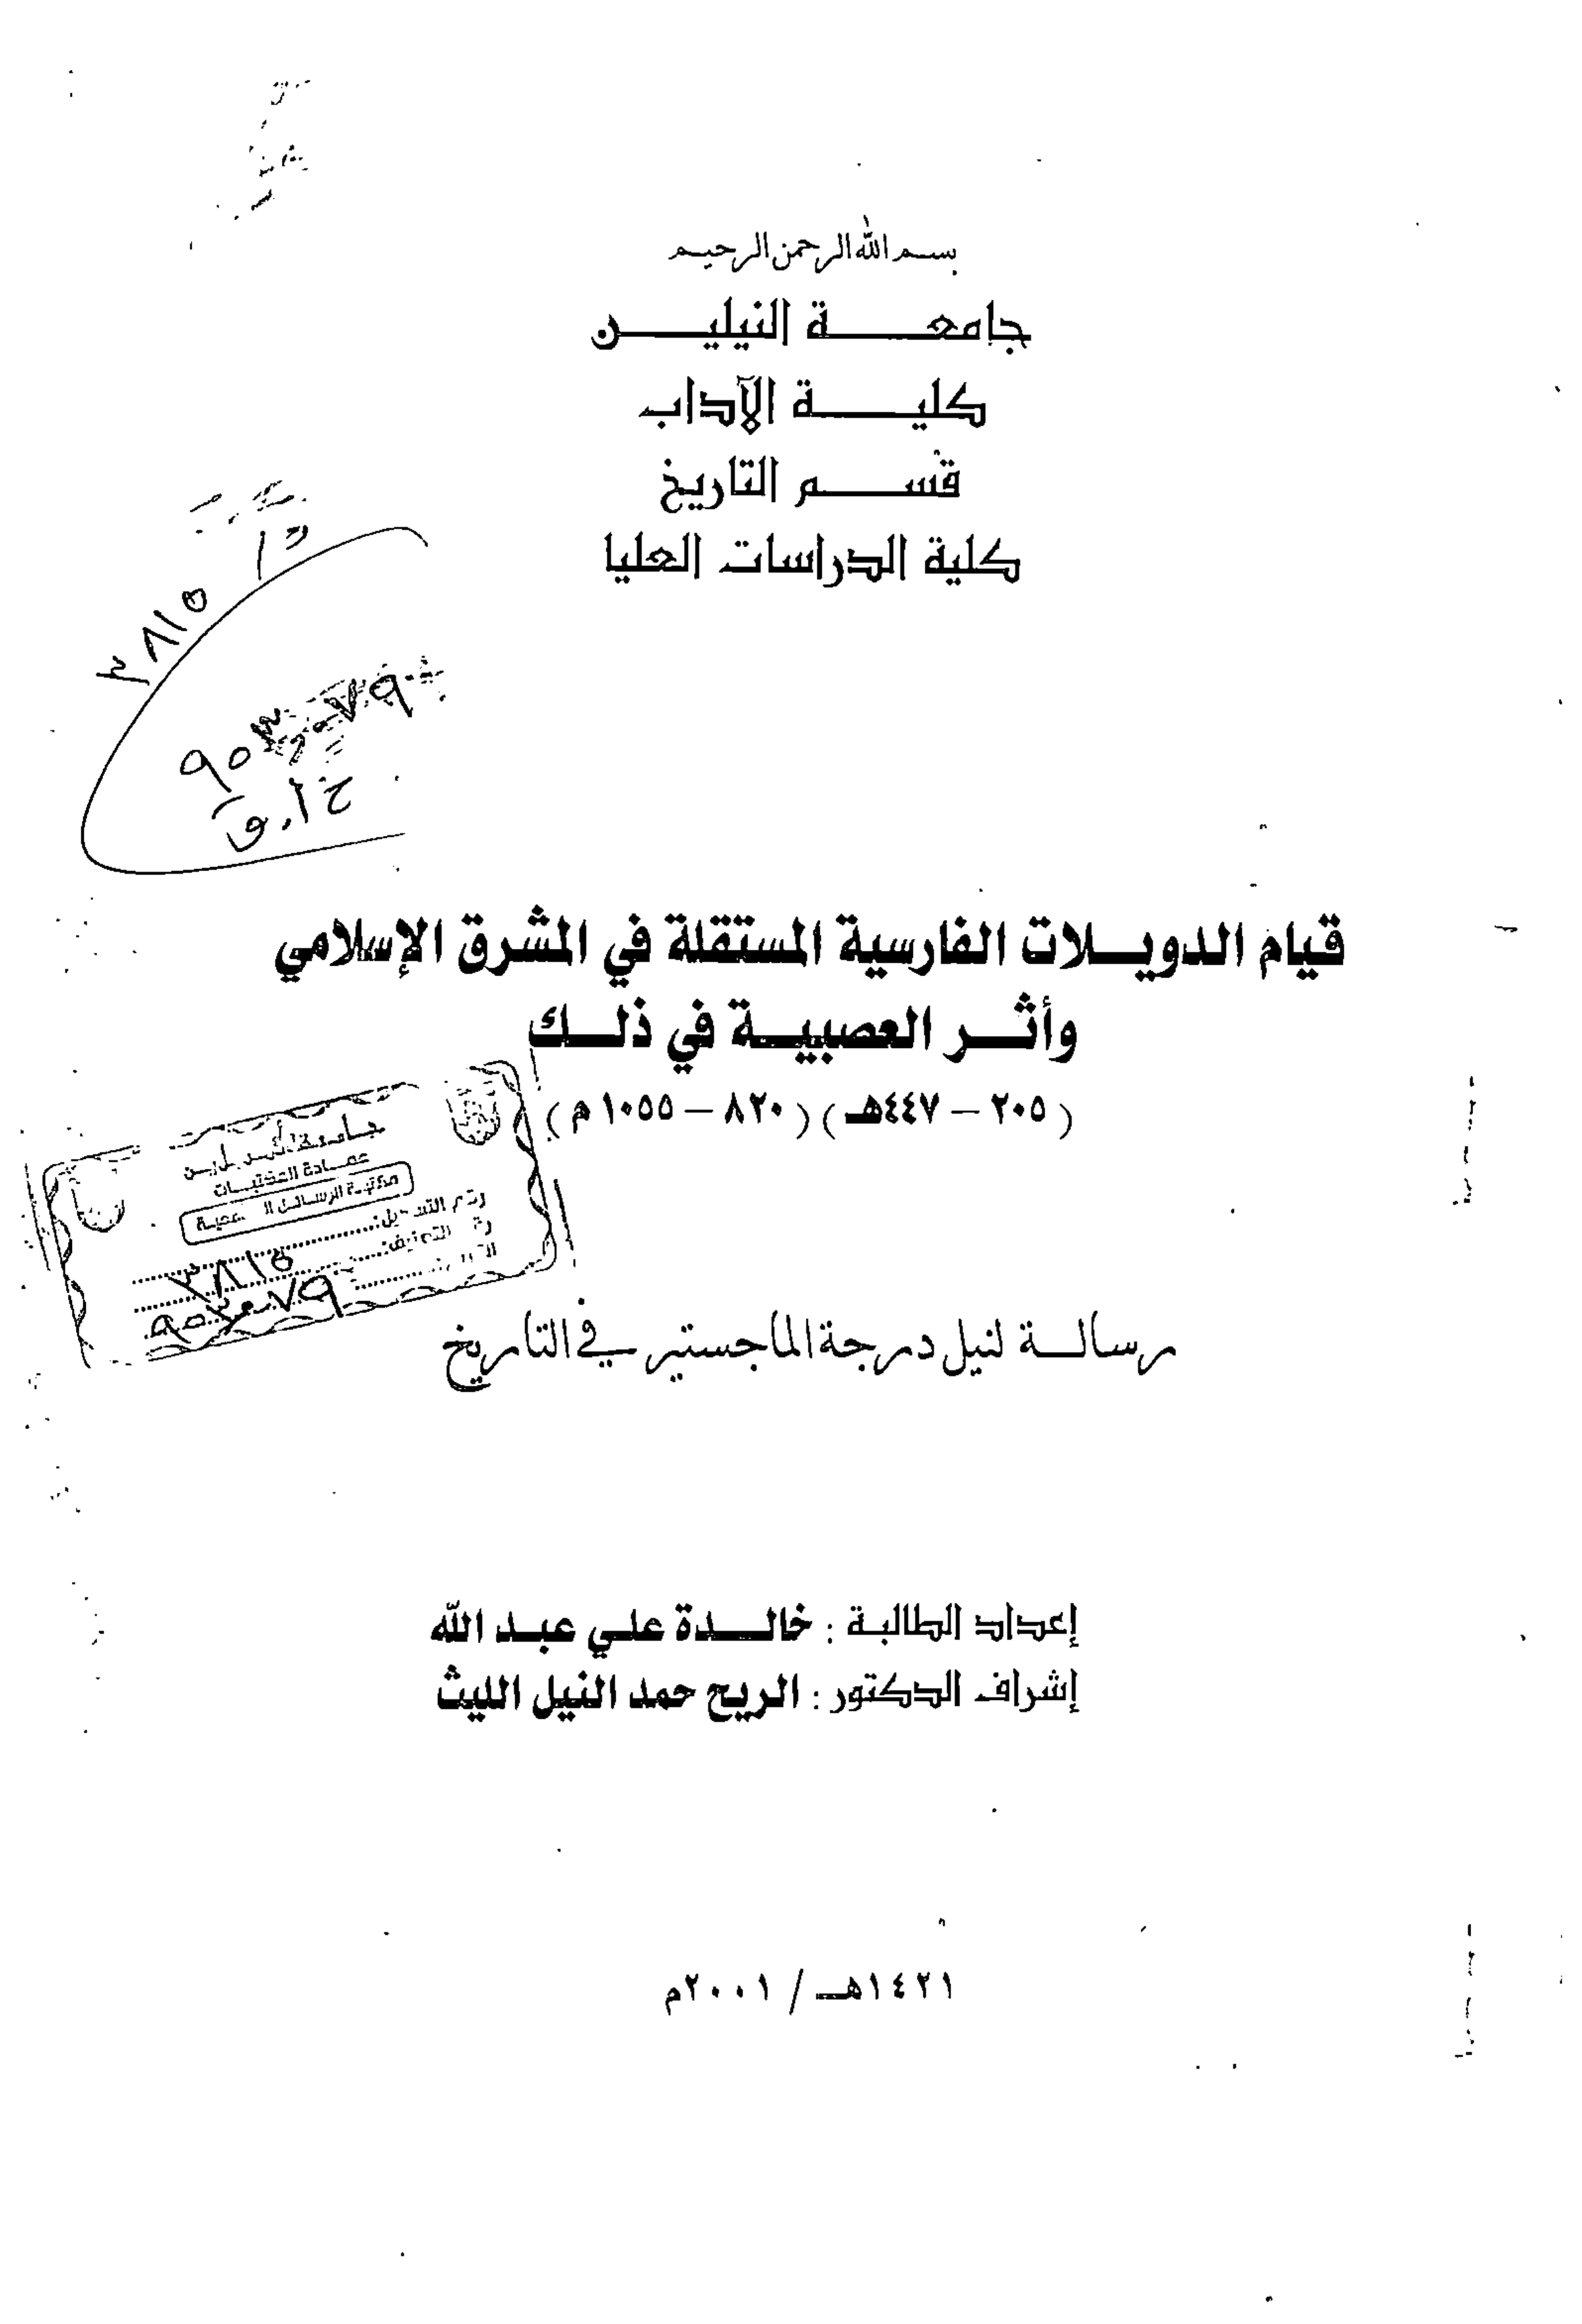 بسم الله الرحمن الرحيم
جامعة النيلين
كلية الآداب
قسم التاريخ
كلية الدراسات العليا
٣٨١٥
٩٥٣.٠٧٩
قيام الدويلات الفارسية المستقلة في المشرق الإسلامي
وأثر العصبية في ذلك
(٢٠٥ – ٤٤٧هـ) (٨٢٠ – ١٠٥٥ م)
جامعة النيلين
عمادة المكتبات
مكتبة الرسائل
رقم التسجيل: ٣٨١٥
رقم التصنيف: ٩٥٣.٠٧٩
رسالة لنيل درجة الماجستير في التاريخ
إعداد الطالبة : خالدة علي عبد الله
إشراف الدكتور : الريح حمد النيل الليث
١٤٢١هـ / ٢٠٠١م